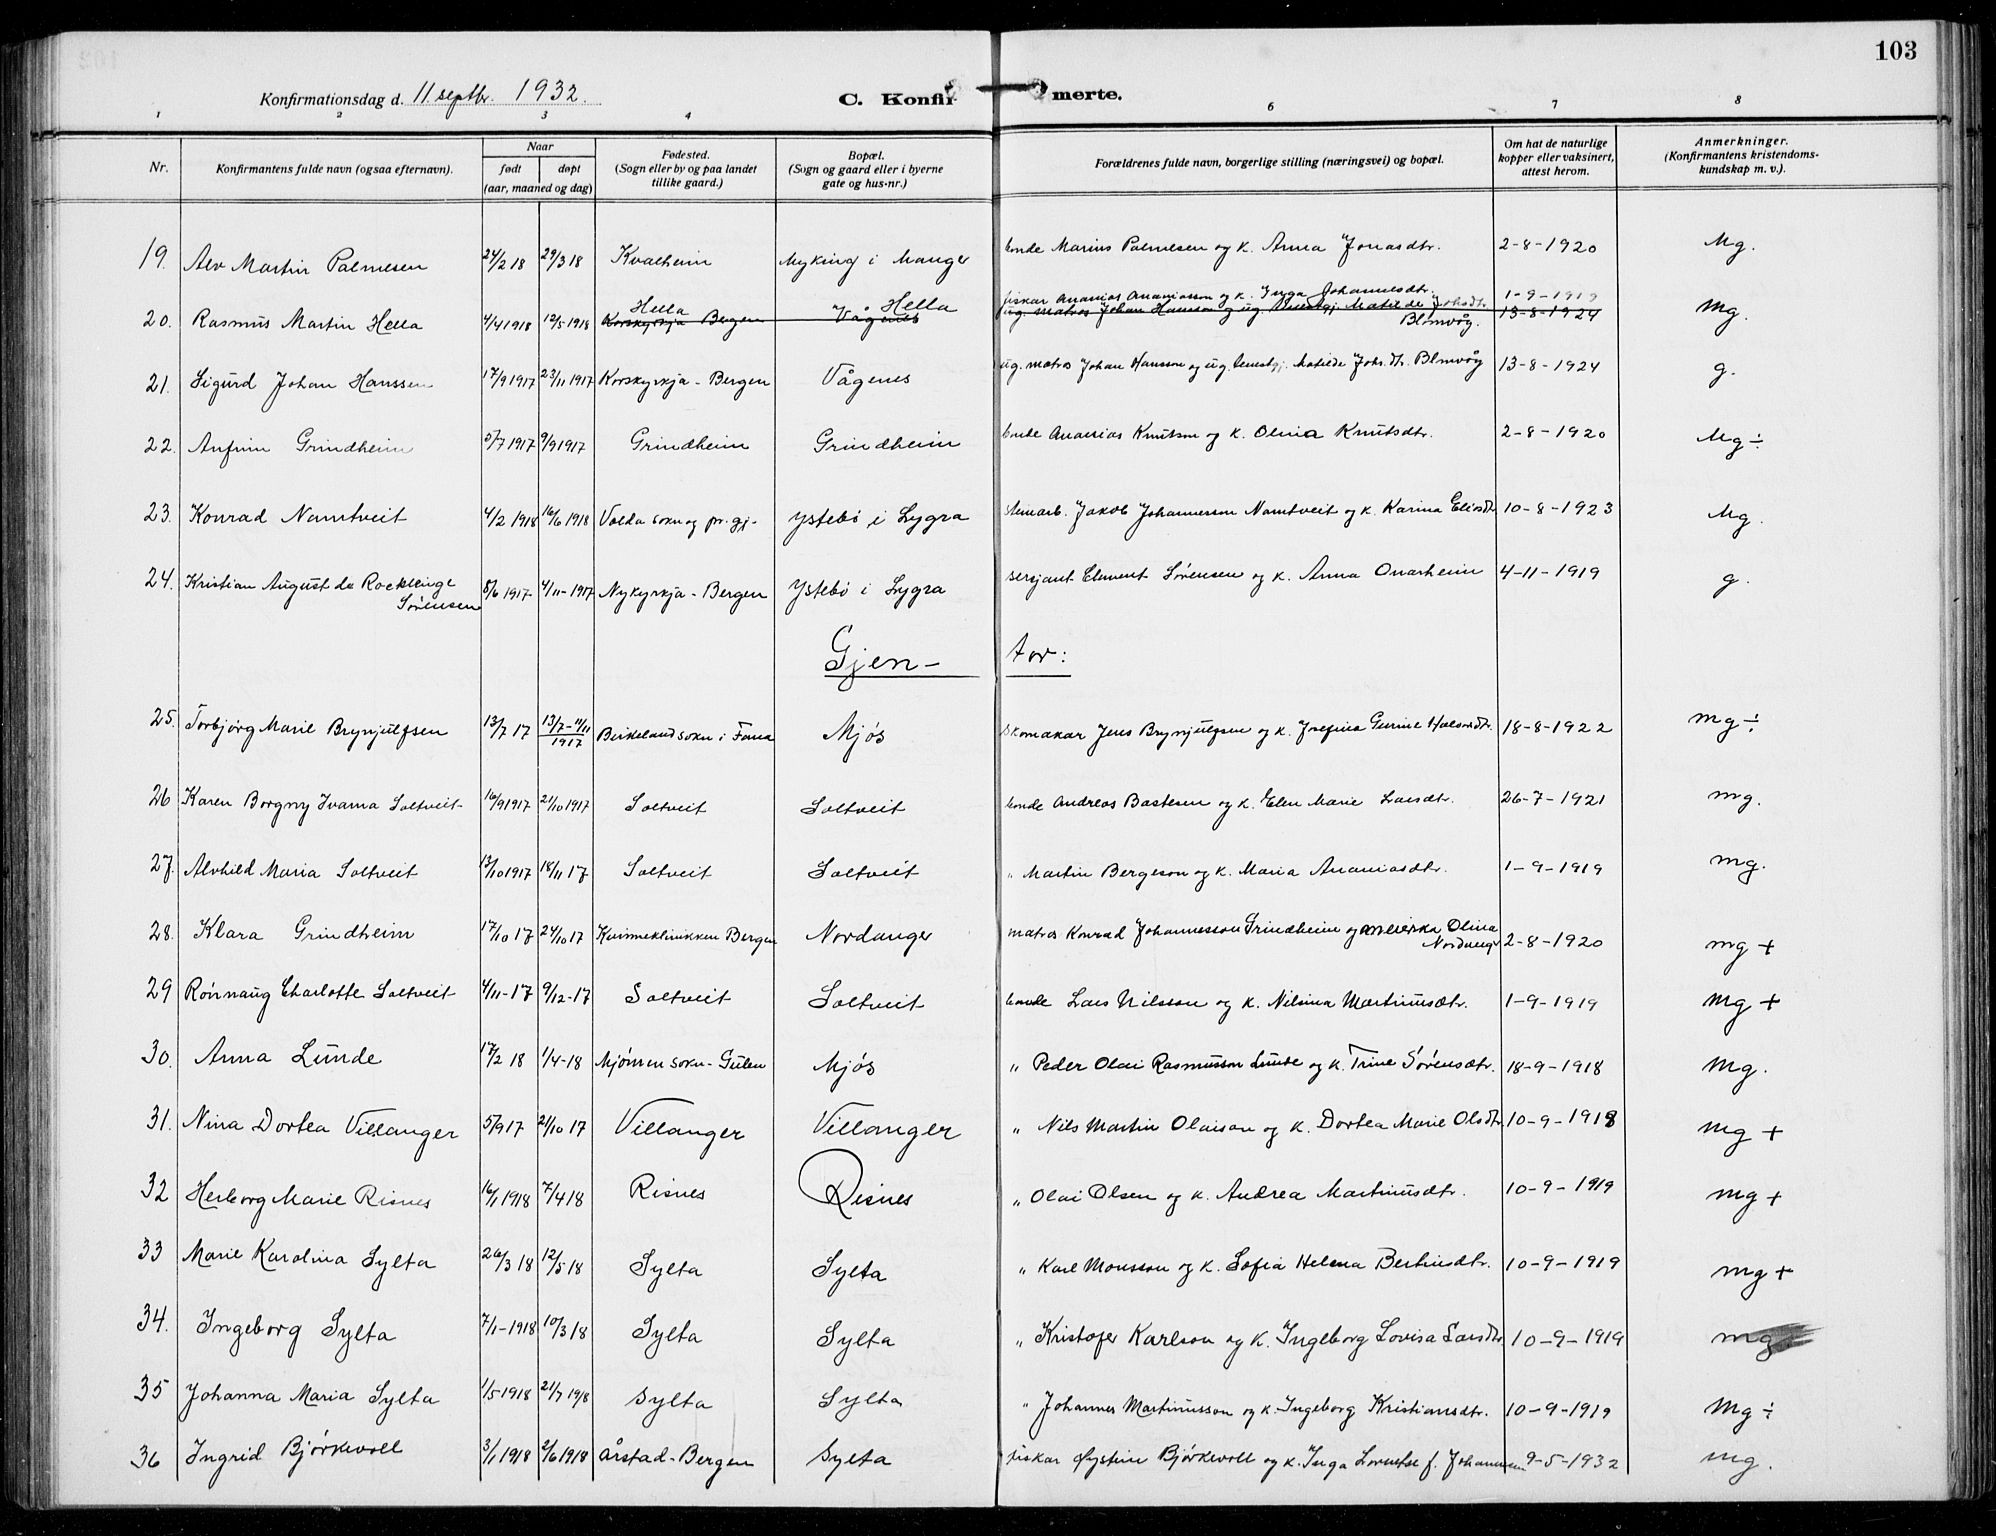 103
Konfirmationsdag d. 11 septbr. 1932.
C. Konfirmerte.
1 2 3 4 6 7 8
Nr.
Konfirmantens fulde navn (ogsaa efternavn).
Naar
født døpt
(aar, maaned og dag)
Fødested.
(Sogn eller by og paa landet
tillike gaard.)
Bopæl.
(Sogn og gaard eller i byerne
gate og hus-nr.)
Forældrenes fulde navn, borgerlige stilling (næringsvei) og bopæl.
Om hat de naturlige
kopper eller vaksinert,
attest herom.
Anmerkninger.
(Konfirmantens kristendoms-
kundskap m. v.).
19. Alv Martin Palmesen 24/2 18 29/3 18 Kvalheim Myking i Manger bonde Marius Palmesen og k. Anna Jonasdtr. 2-8-1920 Mg.
Hella Hella fiskar Ananias Ananiasson og k. Inga Johannesdtr. 1-9-1919
20. Rasmus Martin Hella 4/4 1918 12/5 1918 Korskyrkja Bergen Vågenes ug. matros Johan Hansson og ug. Matilde Johsdtr. 13-8-1924 Mg.
Blomvåg.
21. Sigurd Johan Hanssen 17/9 1917 23/11 1917 Korskyrkja - Bergen Vågenes ug. matros Johan Hansson og ug. Matilde Johs.dtr. Blmvåg 13-8-1924 g.
22. Anfinn Grindheim 5/7 1917 9/9 1917 Grindheim Grindheim bonde Ananias Knutson og k. Olina Knutsdtr. 2-8-1920 Mg ÷
23. Konrad Namtveit 4/2 1918 16/6 1918 Volda sokn og pr.gj. Ystebø i Lygra Jakob Johannesson Namtveit og k. Karina Eliasdtr 10-8-1923 Mg.
24. Kristian August de Rocklenge 8/6 1917 4/11-1917 Nykyrkja - Bergen Ystebø i Lygra sersjant Clement Sørensen og k. Anna Onarheim 4-11-1919 g.
Sørensen
Gjen- tor:
25. Torbjørg Marie Brynjulfsen 13/7 17 13/7-11/11 1917 Birkeland sokn i Fana Mjøs skomakar Jens Brynjulfsen og k. Josefine Gurine Halvorsdtr. 18-8-1922 mg ÷
26 Karen Borgny Ivarna Soltveit 16/9 1917 21/10 1917 Soltveit Soltveit bonde Andreas Bastesen og k. Elen Marie Larsdtr. 26-7-1921 mg.
27. Alvhild Maria Soltveit 13/10 1917 18/11 17 Soltveit Soltveit " Martin Bergeson og k. Maria Ananiasdtr. 1-9-1919 mg.
28. Klara Grindheim 17/10 17 24/10 17 Kvinneklinikken Bergen Nordanger matros Konrad Johannesson Grindheim og Olina 2-8-1920 mg +
Nordanger
29 Rønnaug Charlotte Soltveit 4/11-17 9/12-17 Soltveit Soltveit bonde Lars Nilsson og k. Nilsina Martinusdtr. 1-9-1919 mg +
30. Anna Lunde 17/2 18 1/4-18 Mjømen sokn - Gulen Mjøs " Peder Olai Rasmusson Lunde og k. Trine Sørensdtr. 18-9-1918 Mg.
31. Nina Dortea Villanger 5/9 17 21/10 17 Villanger Villanger " Nils Martin Olaison og k. Dortea Marie Olsdtr 10-9-1918 mg +
32 Herborg Marie Risnes 16/1 1918 7/4 18 Risnes Risnes " Olai Olsen og k. Andrea Martinusdtr. 10-9-1919 mg +
33 Marie Karolina Sylta 26/3 18 12/5 18 Sylta Sylta " Karl Monsson og k. Sofia Helena Bertinsdtr. 10-9-1919 mg +
34. Ingeborg Sylta 7/1-1918 10/3 18 Sylta Sylta " Kristofer Karlson og k. Ingeborg Lovisa Larsdtr 10-9-1919 mg
35 Johanna Maria Sylta 1/5 1918 21/7 1918 Sylta Sylta " Johannes Martinusson og k. Ingeborg Kristiansdtr. 10-9-1919 Mg ÷
36 Ingrid Bjørkevoll 3/1 1918 2/6 1918 Årstad - Bergen Sylta fiskar Øystein Bjørkevoll og k. Inga f. Johannesen 9-5-1932 mg.